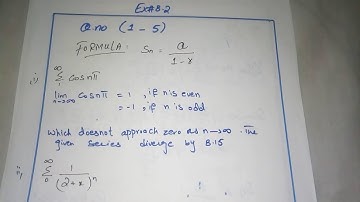 Ex#8.2
Q.no (1 - 5)
FORMULA: Sn = a / 1 - r
i) ∞ Σ 1 cosnπ
lim n→∞ cosnπ = 1 , if n is even
= -1 , if n is odd
which doesnot approach zero as n→∞ The
given series diverge by 8.15
ii) ∞ Σ 0 1 / (2+x)^n